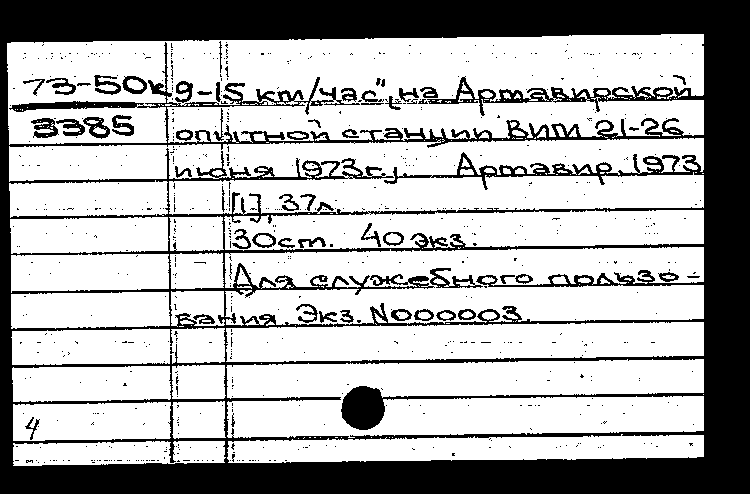 73-50к 9-15 км/час", [на Армавирской
3385 опытной станции ВИМ 21-26
июня 1973г.]. Армавир, 1973
[1], 37л.
30см. 40 экз.
Для служебного пользо-
вания. Экз. N000003.
4